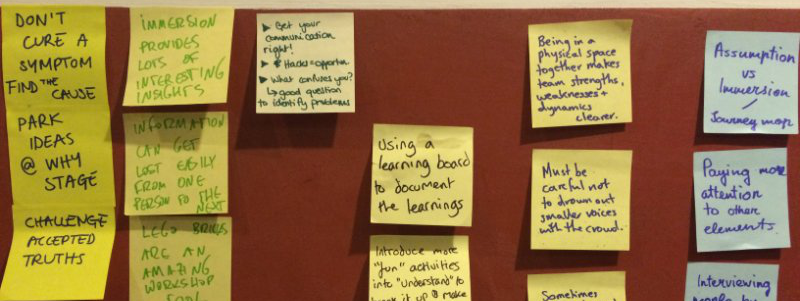 DON'T
CURE A
SYMPTOM
FIND THE
CAUSE
PARK
IDEAS
@ WHY
STAGE
CHALLENGE
ACCEPTED
TRUTHS
IMMERSION
PROVIDES
LOTS OF
INTERESTING
INSIGHTS
INFORMATION
CAN GET
LOST EASILY
FROM ONE
PERSON TO THE
NEXT
LEGO BRICKS
ARE AN
AMAZING
WORKSHOP
TOOL
▶ Get your
communication
right!
▶ Hacks = opportun.
▶ What confuses you?
↳ good question
to identify problems
Using a
learning board
to document
the learnings
Introduce more
"fun" activities
into "understand" to
break it up & make
Being in a
physical space
together makes
team strengths,
weaknesses +
dynamics
clearer.
Must be
careful not
to drown out
smaller voices
with the crowd.
Sometimes
Assumption
vs
Immersion
/
Journey map
Paying more
attention
to other
elements.
Interviewing